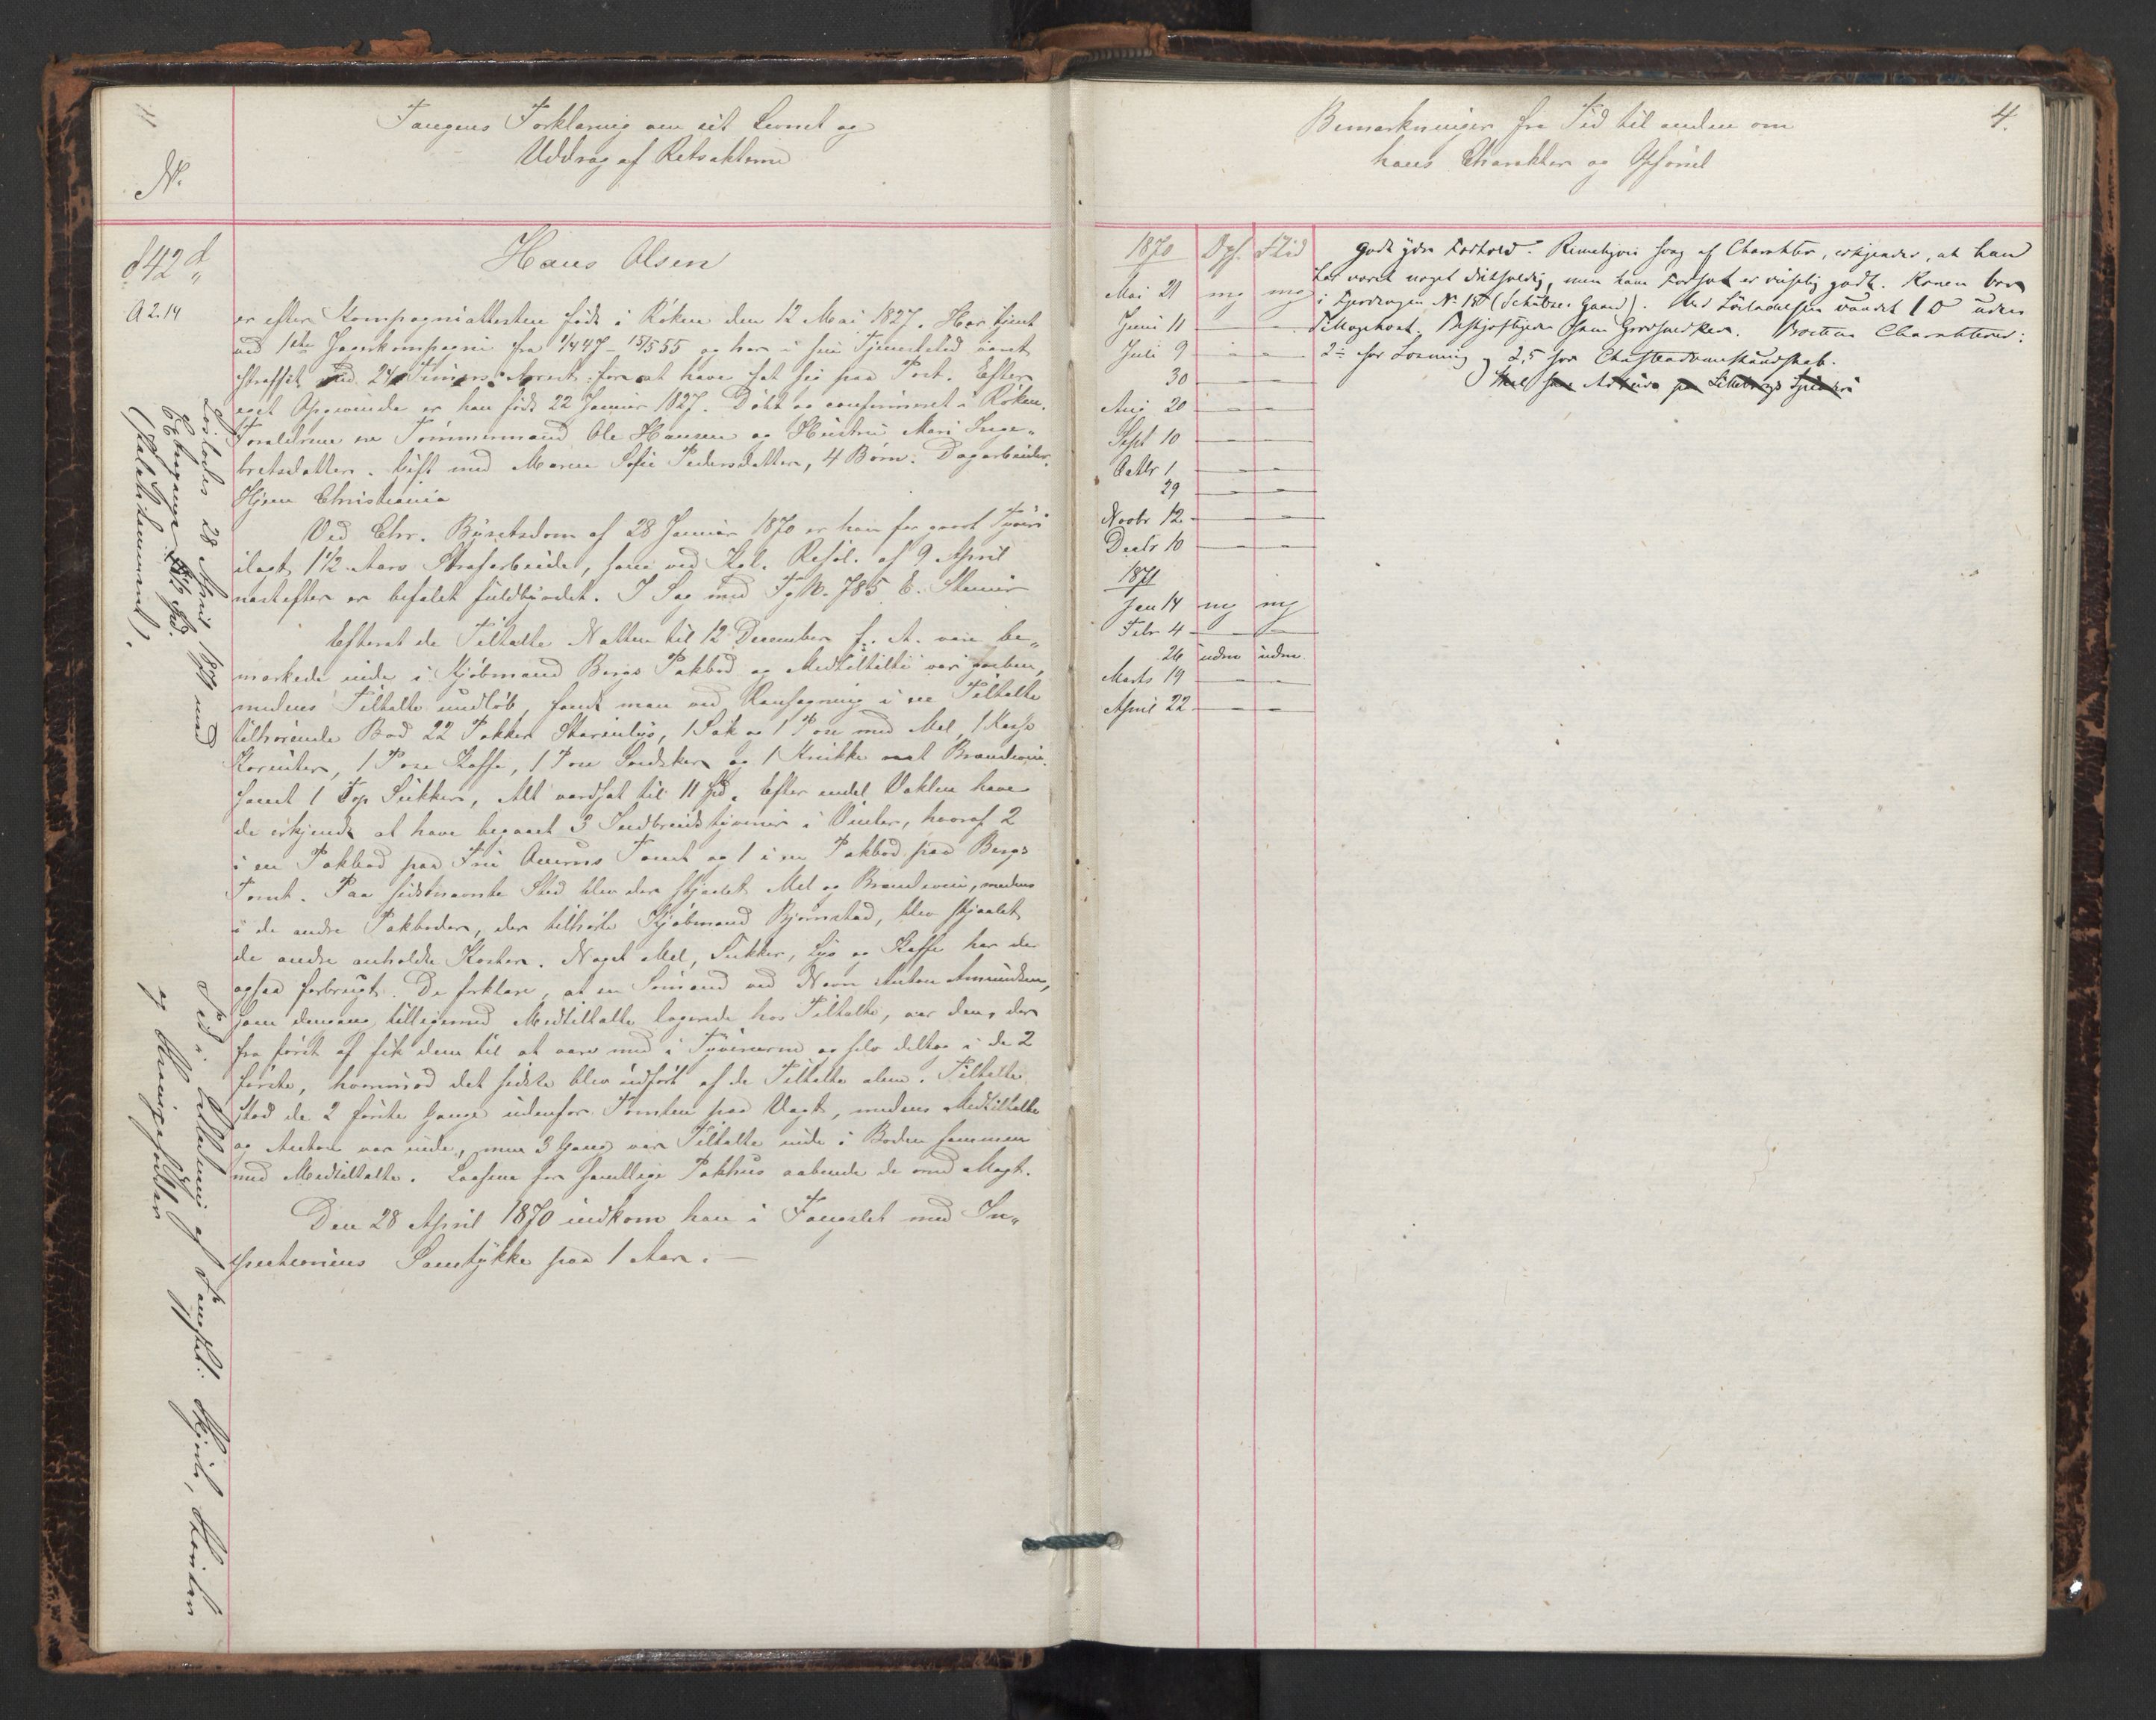 4
Fangens Forklaring om sit Levnet og
Uddrag af Retsakterne
No.
842 d
A 2.14
Hans Olsen
er efter Kompagniattesten født i Røken den 12 Mai 1827. Har tjent
ved 1ste Jægerkompagni fra 1/4 47 - 15/5 55 og har i sin Tjenestetid været
straffet med 24 Timers Arrest for at have sat sig paa Post. Efter
eget Opgivende er han født 22 Januar 1827. Døbt og confirmeret i Røken.
Forældrene ere Tømmermand Ole Hansen og Hustru Mari Inge-
bretsdatter. Gift med Maren Sofie Pedersdatter, 4 Børn. Dagarbeider.
Hjem Christiania
Ved Chr. Byretsdom af 28 Januar 1870 er han for groft Tyveri
ilagt 1 1/2 Aars Strafarbeide, som ved Kgl. Resol. af 9 April
næstefter er befalet fuldbyrdet. I Sag med Fg No. 785 E.
Efterat de Tiltalte Natten til 12 December f. A. vare be-
mærkede inde i Kjøbmand Bergs Pakbod og Medtiltalte var greben,
medens Tiltalte undløb, fandt man ved Ransagning i en Tiltalte
tilhørende Bod 22 Pakker Stearinlys, 1 Sæk og 1 Pose med Mel, 1 Kasse
Korinter, 1 Pose Kaffe, 1 Pose og 1 Knikke med Brændeviin
samt 1 Top Sukker, Alt værdsat til 11 Spd. Efter endel Vaklen have
de erkjendt at have begaaet 3 Indbrudstyverier i Vinter, hvoraf 2
i en Pakbod paa Fru Tomt og 1 i en Pakbod paa Bergs
Tomt. Paa sidstnævnte Sted blev der stjaalet Mel og Brændeviin, medens
i de andre Pakboder, der tilhørte Kjøbmand Bjørnstad, blev stjaalet
de andre anholdte Koster. Noget Mel, Sukker, Lys og Kaffe har der
ogsaa forbrugt. De forklare, at en Sømand ved Navn Anton Amundsen,
som dengang tilligemed Medtiltalte logerede hos Tiltalte, var den, der
fra først af fik dem til at være med i Tyverierne og selv deltog i de 2
første, hvorimod det sidste blev udført af de Tiltalte alene. Tiltalte
stod de 2 første Gange udenfor Tomten paa Vagt, medens Medtiltalte
og Anton var inde, men 3 Gang var Tiltalte inde i Boden sammen
med Medtiltalte. Laasene for samtlige Pakhus aabnede de med Magt.
Den 28 April 1870 indkom han i Fængslet med In-
spectionens Samtykke paa 1 Aar. —
Løslades 28 April 1871 med
Udgangs Spd.
Ved Løsladelsen af Fængslet: Skjorte,
og
Bemærkninger fra Tid til anden om
hans Charakter og Opførsel
4.
1870 Opf. Flid
Mai 21 mg mg
Juni 11 — —
Juli 9 — —
30 — —
Aug 20 — —
Sept 10 — —
Octbr 1 — —
29 — —
Novbr 12 — —
Decbr 10 — —
1871
Jan 14 mg mg
Febr 4 — —
26 udm udm
Marts 19 — —
April 22 — —
Godt ydre Forhold. Rimeligvis svag af Charakter, erkjender, at han
har været noget drikfældig, men hans Forsæt er vistnok godt. Konen bor
i Fjerdingen No. (Schützes Gaard). Ved Løsladelsen
Beskjæftiges som Charakterer:
2 for Læsning og 2,5 for Christendomskundskab.
Skal have Arbeide paa Lilleborgs